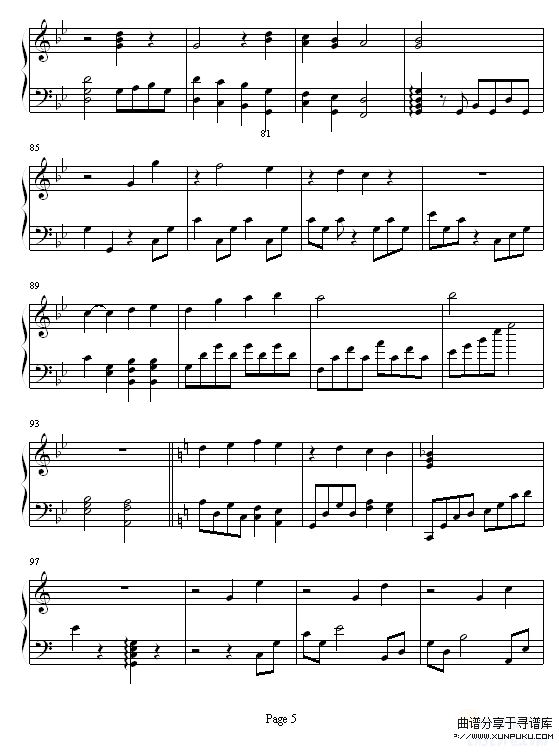 81
85
89
93
97
Page 5
曲谱分享于寻谱库
WWW.XUNPUKU.COM